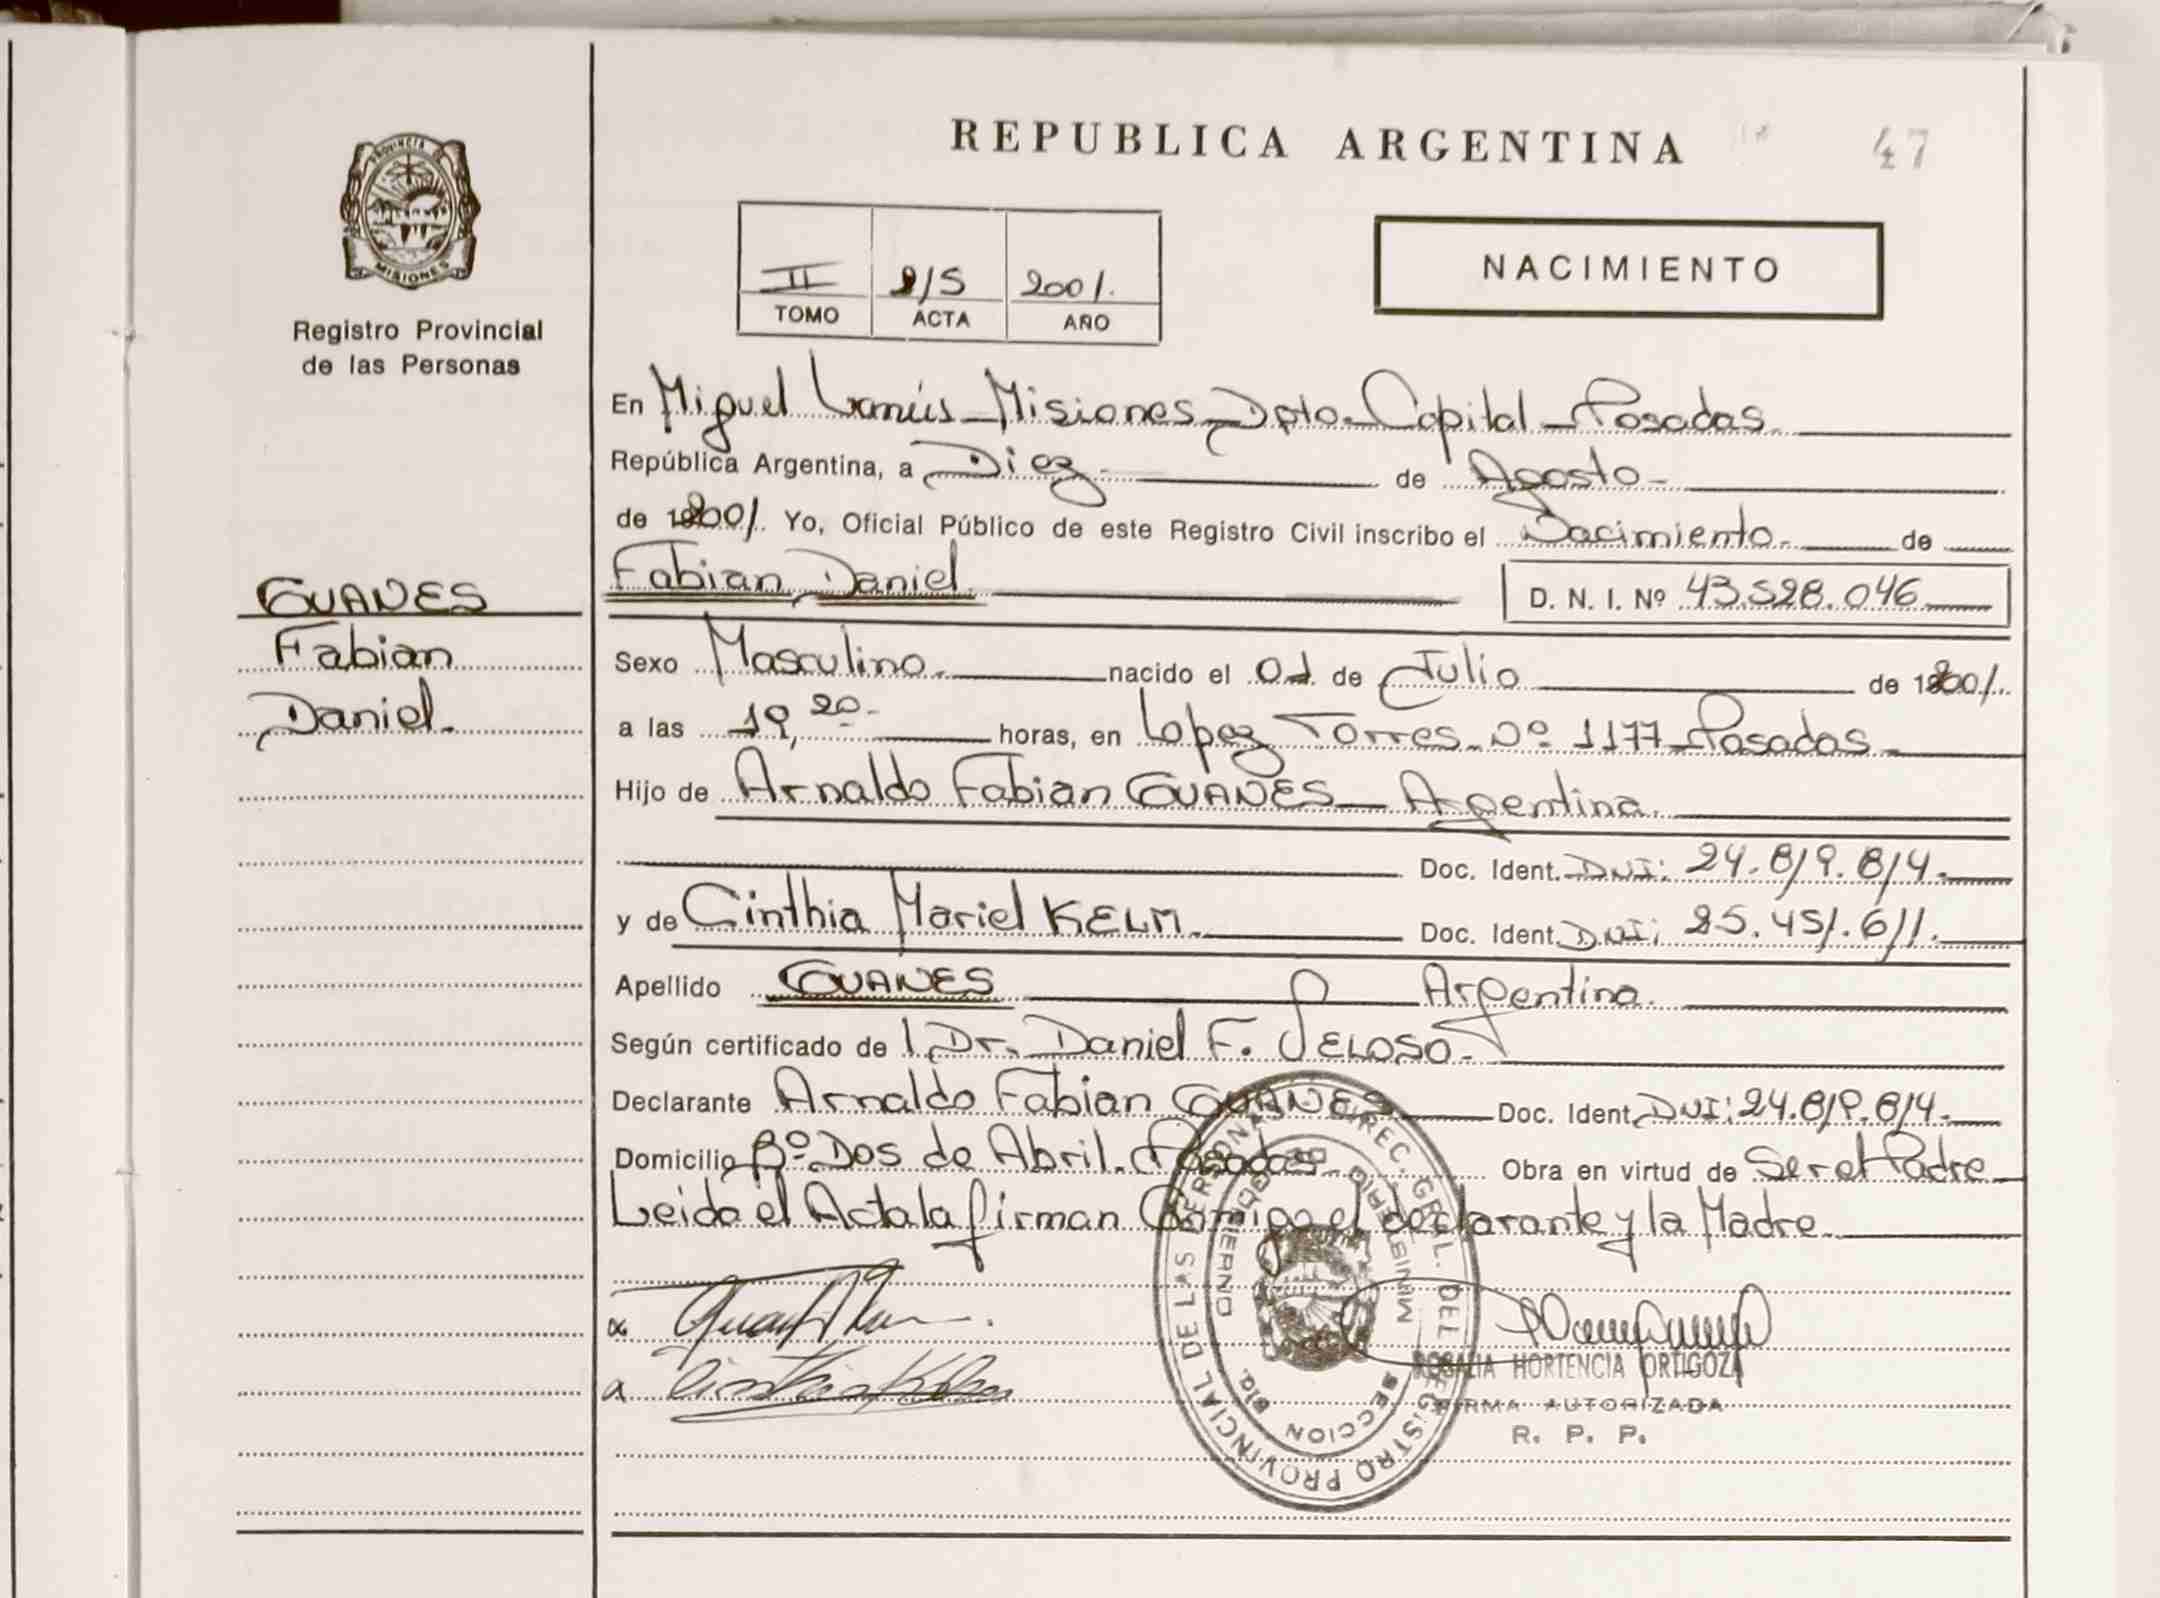 REPUBLICA ARGENTINA
47
PROVINCIA DE
MISIONES
Registro Provincial
de las Personas
II 215 2001.
TOMO ACTA AÑO
NACIMIENTO
En Miguel Lanús - Misiones - Dpto - Capital - Posadas.
República Argentina, a Diez de Agosto
de 2001. Yo, Oficial Público de este Registro Civil inscribo el Nacimiento de
GUANES
Fabian
Daniel.
Fabian Daniel. D. N. I. Nº 43.528.046
Sexo Masculino nacido el 01 de Julio de 2001.
a las 19,20 horas, en Lopez Torres Nº 1177 - Posadas
Hijo de Arnaldo Fabian GUANES - Argentina.
Doc. Ident. DNI: 24.819.814.
y de Cinthia Mariel KELM. Doc. Ident. DNI: 25.451.611.
Apellido GUANES Argentina.
Según certificado de Dr. Daniel F.
Declarante Arnaldo Fabian GUANES Doc. Ident. DNI: 24.819.814.
Domicilio Bº Dos de Abril. Posadas Obra en virtud de Ser el Padre
Leida el Acta la firman Conmigo el declarante y la Madre.
DIREC. GRAL. DEL REGISTRO PROVINCIAL DE LAS PERSONAS
MINISTERIO DE GOBIERNO
SECCION
ROSALIA HORTENCIA ORTIGOZA
FIRMA AUTORIZADA
R. P. P.